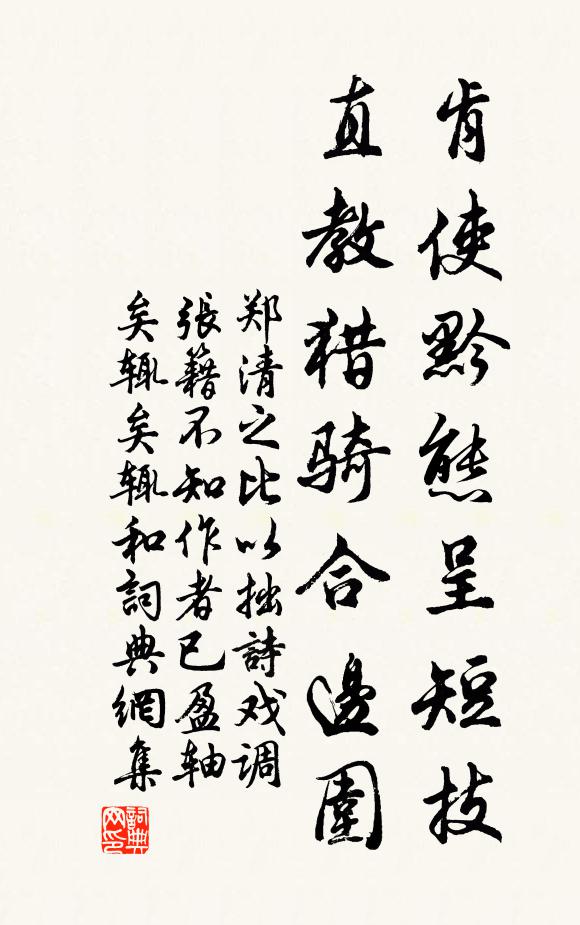 肯使黔熊呈短技
直教猎骑合邊圍
郑清之比以拙詩戏调
張籍不知作者已盈轴
矣辄矣辄和詞典網集
詞典網印